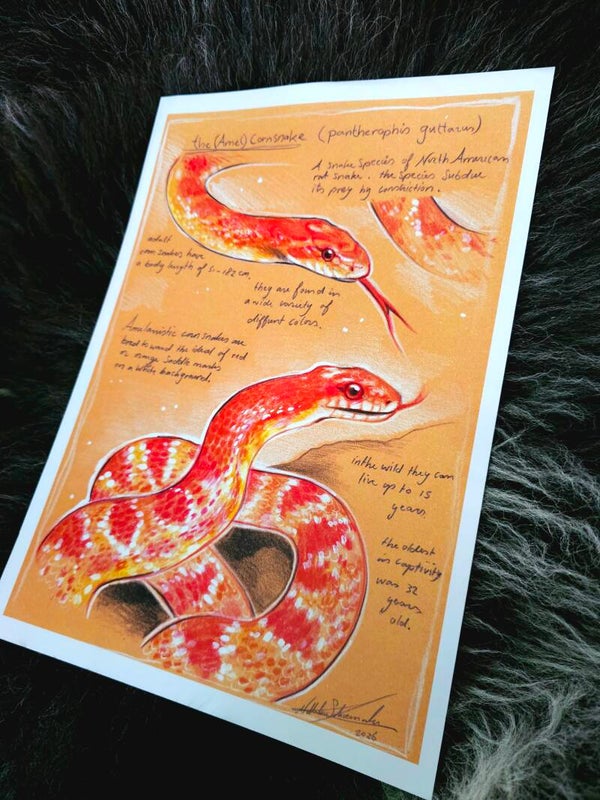 the (Amel) Cornsnake (pantherophis guttatus)
A snake species of North American
rat snake. the species subdue
its prey by constriction.
adult
corn snakes have
a body length of 61-182 cm.
they are found in
a wide variety of
diffrent colors.
Amelanistic corn snakes are
bred toward the ideal of red
or orange saddle marks
on a white background.
in the wild they can
live up to 15
years
the oldest
in captivity
was 32
years
old.
2026